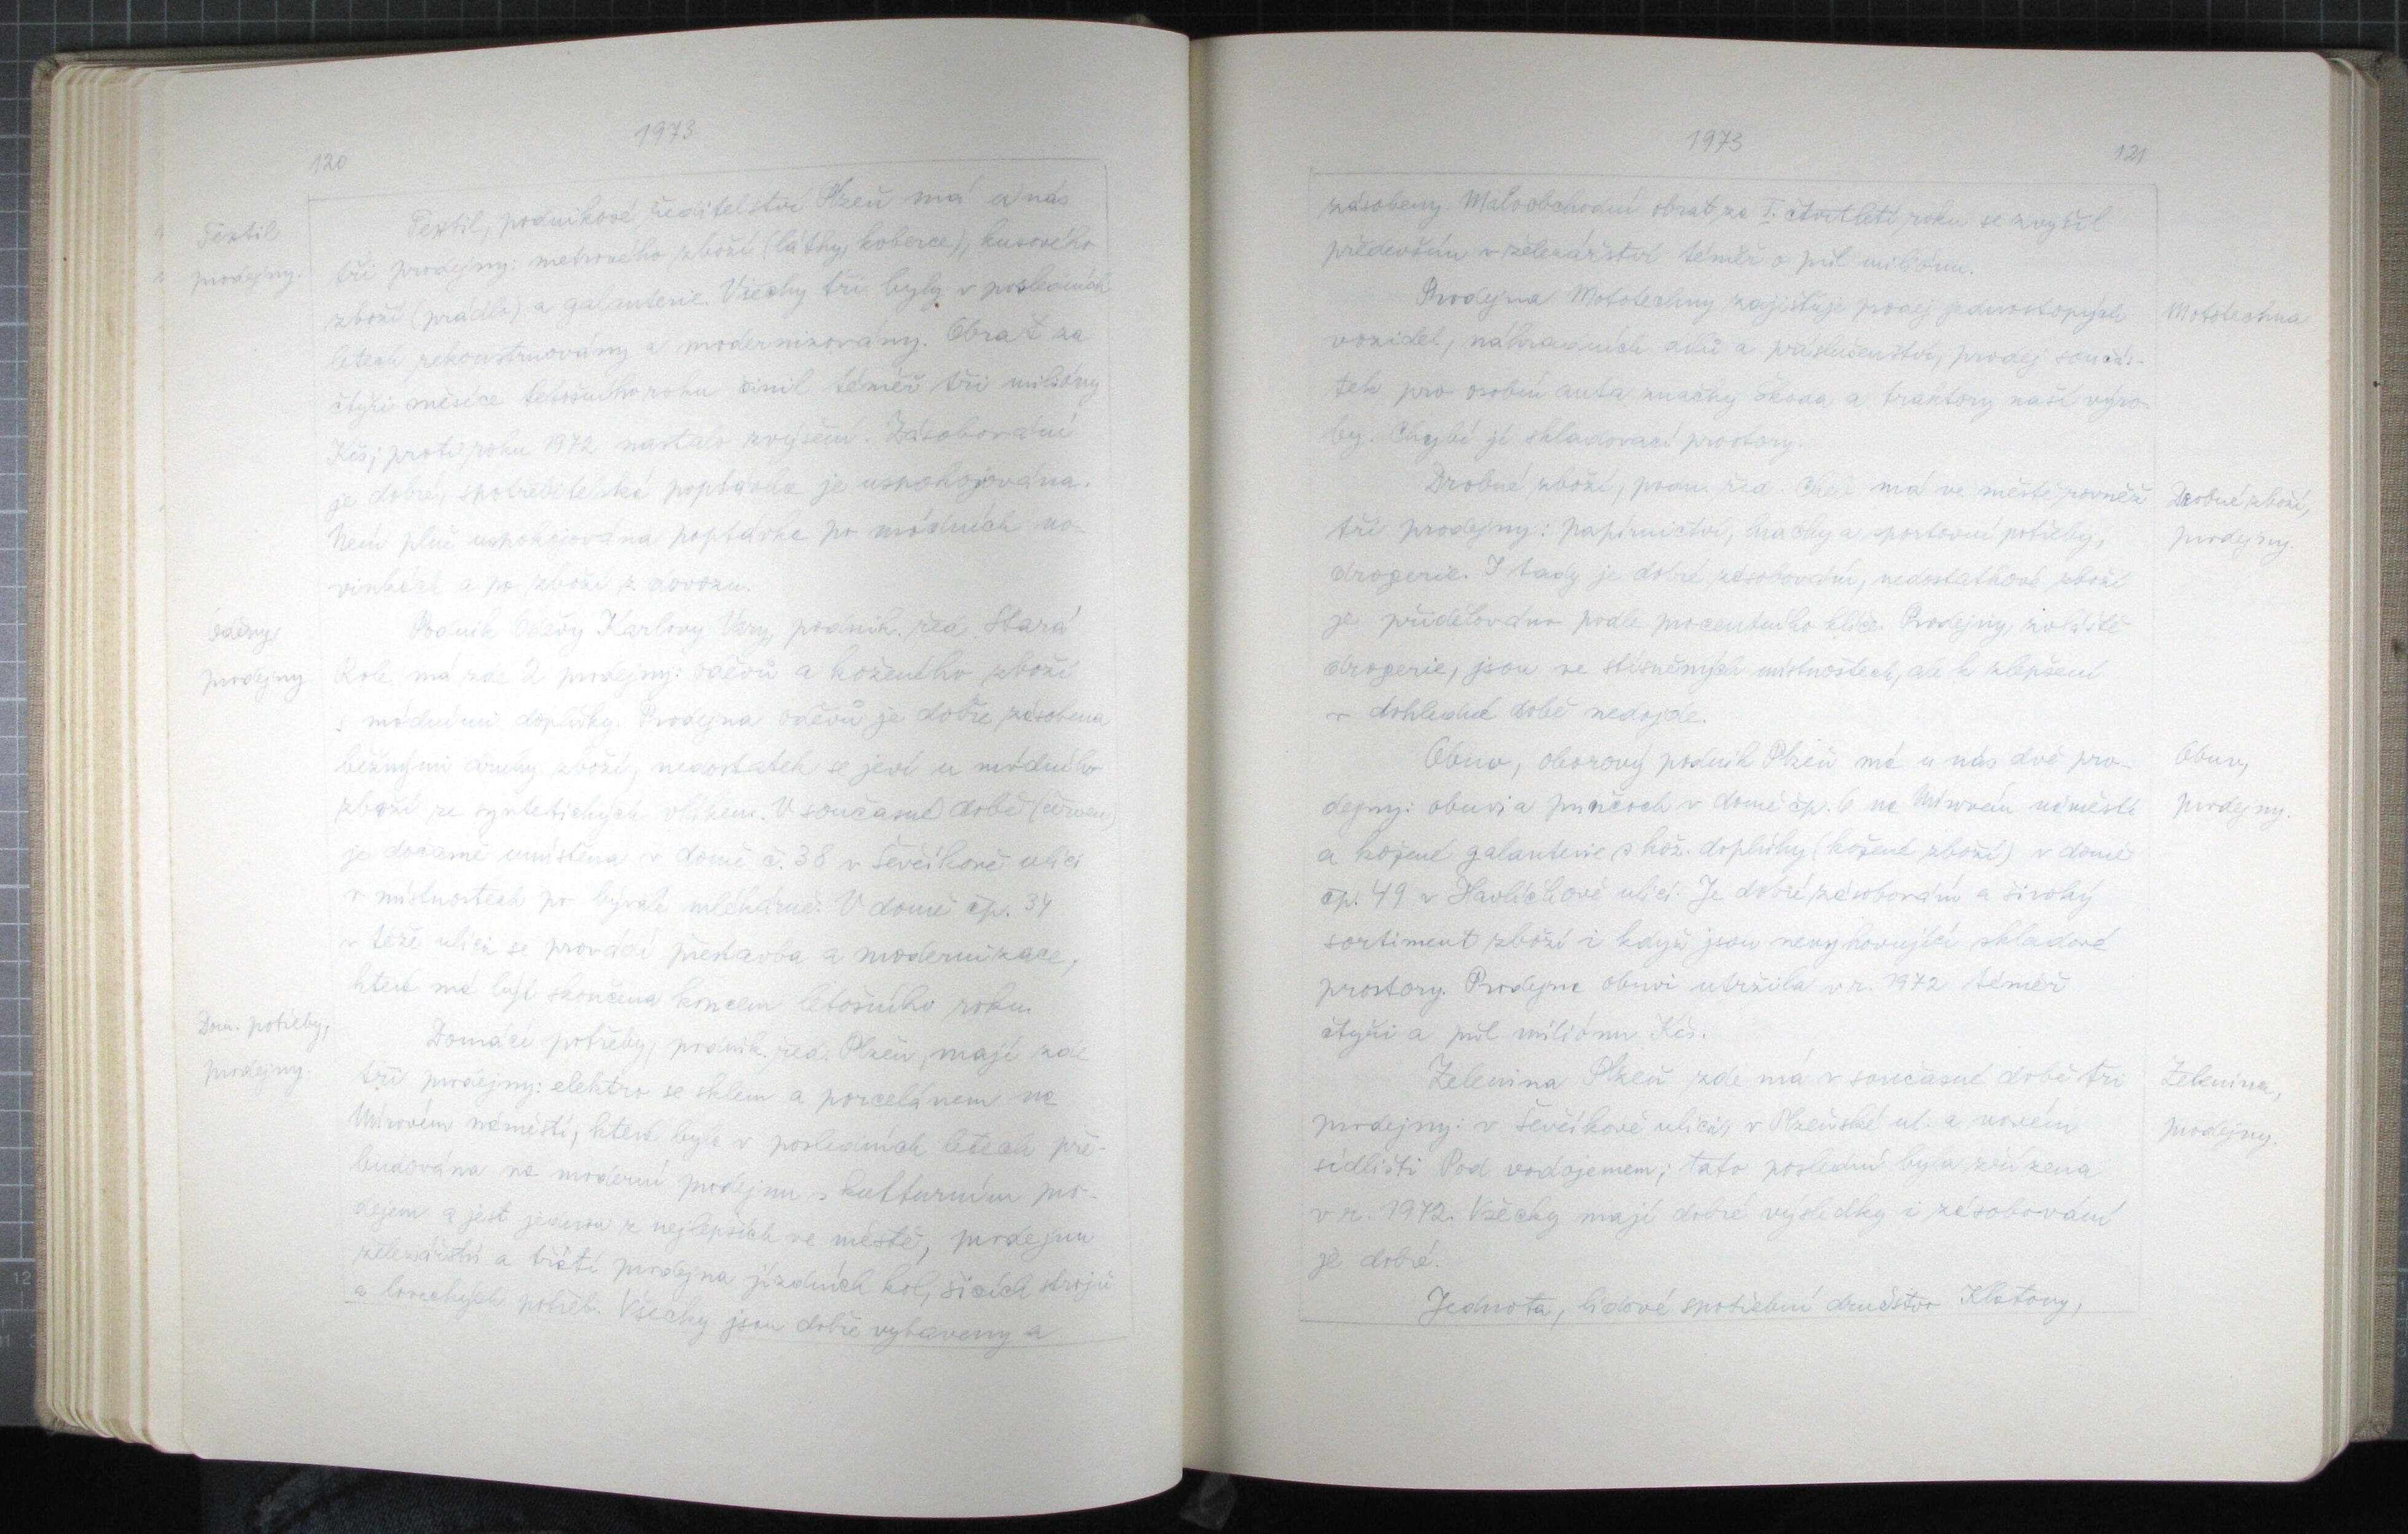 1973
120
Textil
prodejny.
Textil, podnikové ředitelství Plzeň má u nás
tři prodejny: metrového zboží (látky, koberce), kusového
zboží (prádlo) a galanterie. Všechy tři byly v posledních
letech rekonstruovány a modernizovány. Obrat za
čtyři měsíce letošního roku činil téměř tři milióny
Kčs; proti roku 1972 nastalo zvýšení. Zásobování
je dobré, spotřebitelská poptávka je uspokojována.
Není plně uspokojována poptávka po módních no-
vinkách a po zboží z dovozu.
Oděvy,
prodejny
Podnik Oděvy Karlovy Vary, podnik. řed. Stará
Role má zde 2 prodejny: oděvů a koženého zboží
s módními doplňky. Prodejna oděvů je dobře zásobena
běžnými druhy zboží, nedostatek se jeví u módního
zboží ze syntetických vláken. V současné době (červen)
je dočasně umístěna v domě č. 38 v Ševčíkově ulici
v místnostech po bývalé mlékárně. V domě čp. 34
v téže ulici se provádí přestavba a modernizace,
která má být skončena koncem letošního roku.
Dom. potřeby,
prodejny.
Domácí potřeby, podnik. řed. Plzeň, mají zde
tři prodejny: elektro se sklem a porcelánem na
Mírovém náměstí, která byla v posledních letech pře-
budována na moderní prodejnu s kulturním pro-
dejem a jest jednou z nejlepších ve městě, prodejnu
železářství a třetí prodejna jízdních kol, šicích strojů
a loveckých potřeb. Všechy jsou dobře vybaveny a
1973
121
zásobeny. Maloobchodní obrat za I. čtvrtletí roku se zvýšil
především v železářství téměř o půl miliónu.
Mototechna
Prodejna Mototechny zajišťuje prodej jednostopých
vozidel, náhradních dílů a příslušenství, prodej součás-
tek pro osobní auta značky Škoda a traktory naší výro-
by. Chybí jí skladovací prostory.
Drobné zboží,
prodejny.
Drobné zboží, podn. řed. Cheb má ve městě rovněž
tři prodejny: papírnictví, hračky a sportovní potřeby,
drogerie. I tady je dobré zásobování, nedostatkové zboží
je přidělováno podle procentního klíče. Prodejny, zvláště
drogerie, jsou ve stísněných místnostech, ale k zlepšení
v dohledné době nedojde.
Obuv,
prodejny.
Obuv, oborový podnik Plzeň má u nás dvě pro-
dejny: obuvi a punčoch v domě čp. 6 na Mírovém náměstí
a kožené galanterie s kož. doplňky (kožené zboží) v domě
čp. 49 v Havlíčkově ulici. Je dobré zásobování a široký
sortiment zboží i když jsou nevyhovující skladové
prostory. Prodejna obuvi utržila v r. 1972 téměř
čtyři a půl miliónu Kčs.
Zelenina,
prodejny.
Zelenina Plzeň zde má v současné době tři
prodejny: v Ševčíkově ulici, v Plzeňské ul. a novém
sídlišti Pod vodojemem; tato poslední byla zřízena
v r. 1972. Všechy mají dobré výsledky i zásobování
je dobré.
Jednota, lidové spotřební družstvo Klatovy,